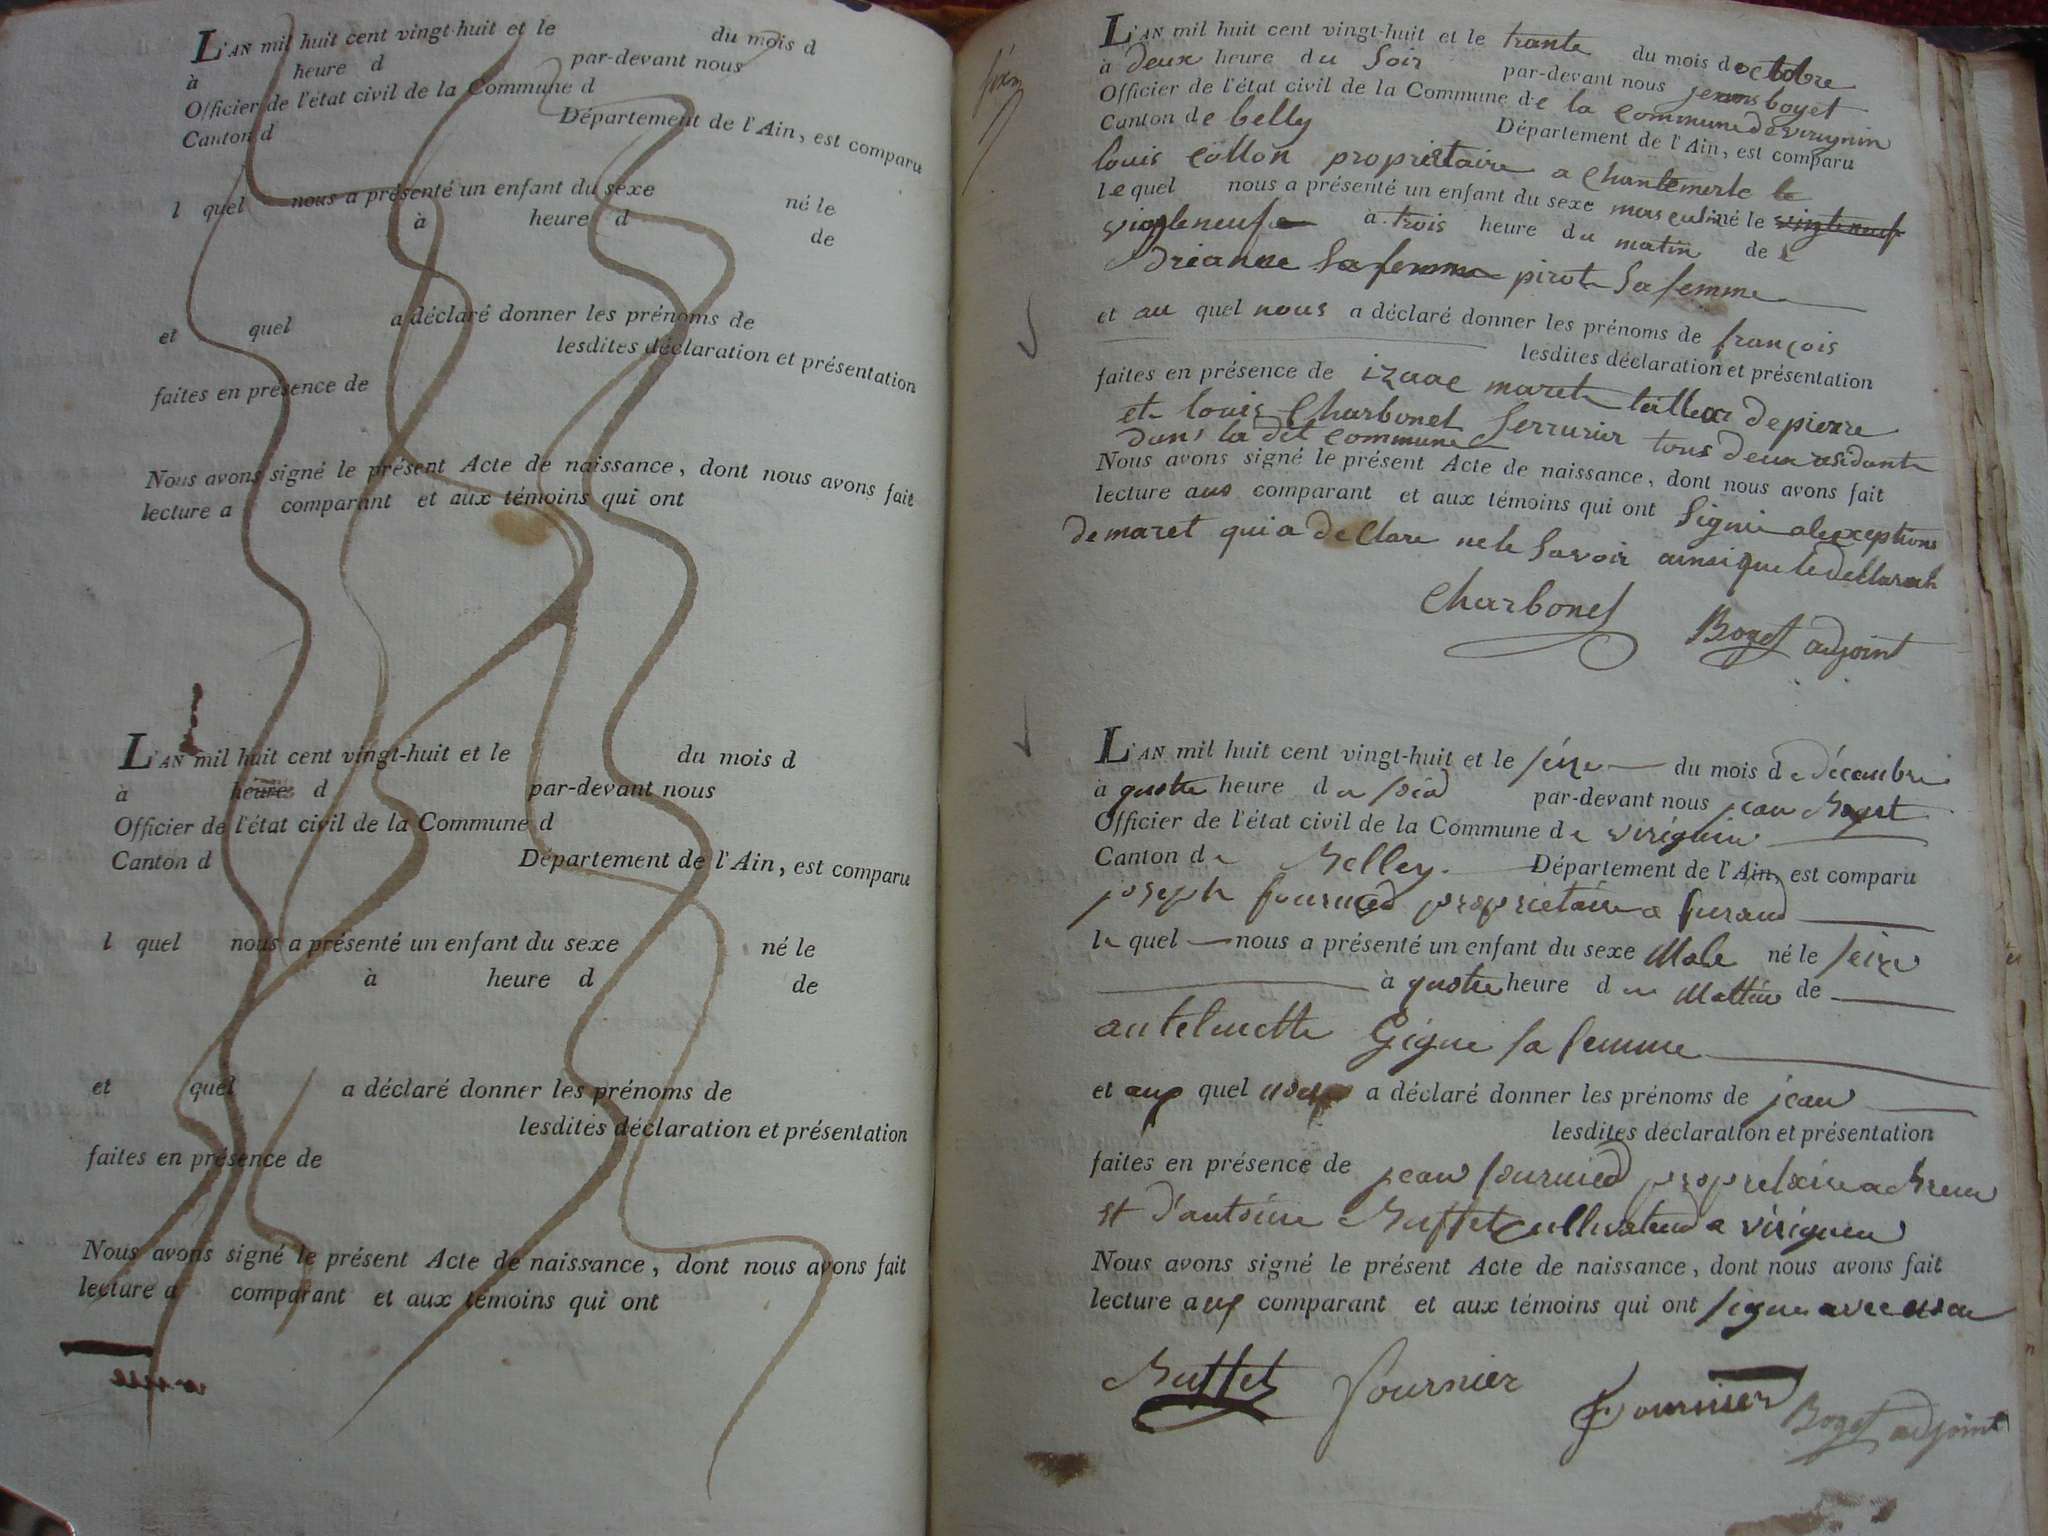 L'AN mil huit cent vingt-huit et le du mois d
à heure d par-devant nous
Officier de l'état civil de la Commune d
Canton d Département de l'Ain, est comparu
l quel nous a présenté un enfant du sexe né le
à heure d de
et quel a déclaré donner les prénoms de
lesdites déclaration et présentation
faites en présence de
Nous avons signé le présent Acte de naissance, dont nous avons fait
lecture a comparant et aux témoins qui ont
L'AN mil huit cent vingt-huit et le du mois d
à heure d par-devant nous
Officier de l'état civil de la Commune d
Canton d Département de l'Ain, est comparu
l quel nous a présenté un enfant du sexe né le
à heure d de
et quel a déclaré donner les prénoms de
lesdites déclaration et présentation
faites en présence de
Nous avons signé le présent Acte de naissance, dont nous avons fait
lecture a comparant et aux témoins qui ont
L'AN mil huit cent vingt-huit et le trante du mois d'octobre
à deux heure du soir par-devant nous boyet
Officier de l'état civil de la Commune de la commune de virignin
Canton de belly Département de l'Ain, est comparu
louis collon proprietaire a chantemerle le
lequel nous a présenté un enfant du sexe masculin né le vingt neuf
vingt neuf à trois heure du matin de
sa femme pirot sa femme
et au quel nous a déclaré donner les prénoms de françois
lesdites déclaration et présentation
faites en présence de izaac maret tallieur de pierre
et louis Charbonet serrurier tous deux residant
dans la dit commune
Nous avons signé le présent Acte de naissance, dont nous avons fait
lecture aus comparant et aux témoins qui ont signé a lexceptions
de maret qui a declare ne le savoir ainsi que le declarant
Charbonet Bozet adjoint
L'AN mil huit cent vingt-huit et le seize du mois de décembre
à quatre heure du soir par-devant nous jean Bozet
Officier de l'état civil de la Commune de virignin
Canton de Belley. Département de l'Ain, est comparu
joseph fournier proprietaire a
le quel nous a présenté un enfant du sexe Male né le seize
à quatre heure du Mattin de
antelmette Gigne sa femme
et auq quel nous a déclaré donner les prénoms de jean
lesdites déclaration et présentation
faites en présence de jean fournier propretaire a
et d'antoine Buffet cultivateur a virignin
Nous avons signé le présent Acte de naissance, dont nous avons fait
lecture aux comparant et aux témoins qui ont signé avec nous
Buffet fournier fournier Bozet adjoint